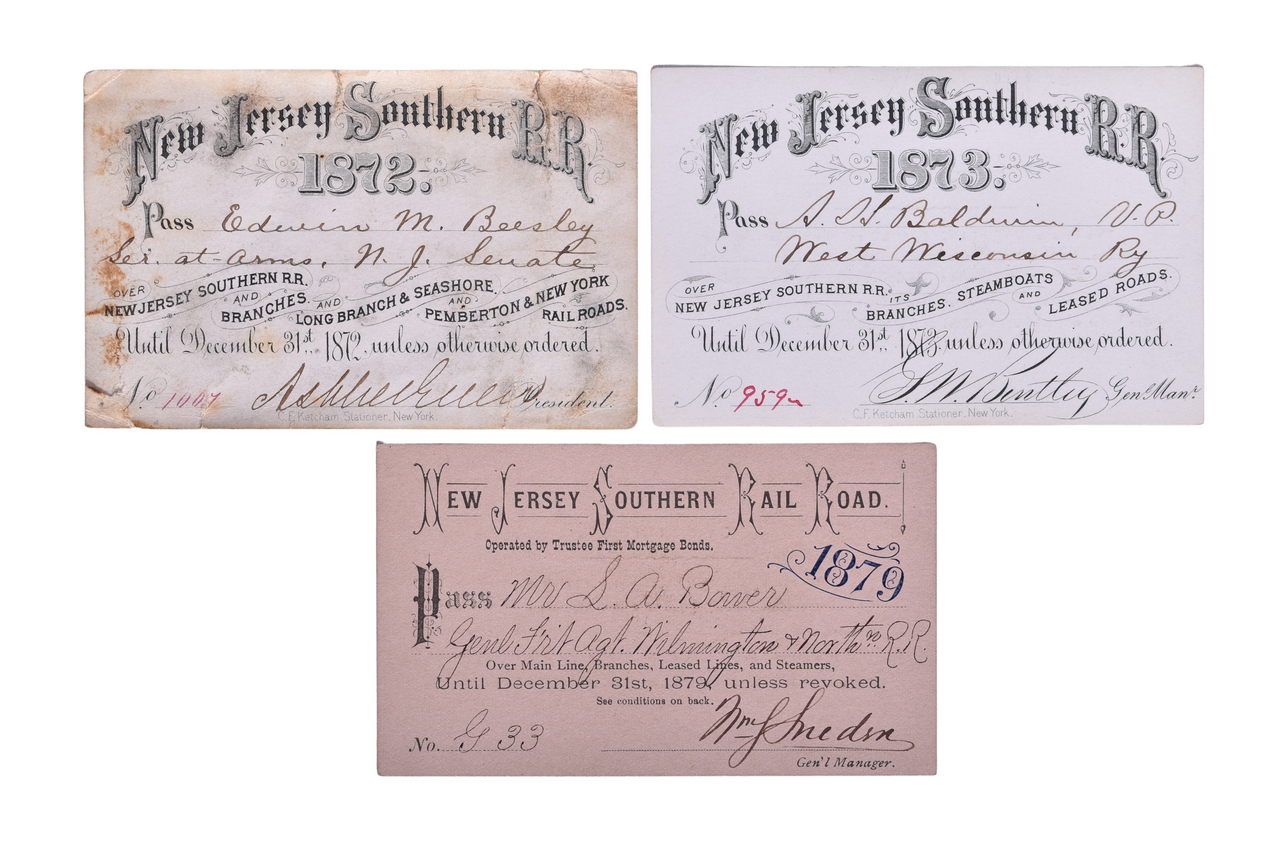 New Jersey Southern R.R.
1872.
Pass Edwin M. Beesley
Ser. at-arms, N. J. Senate
OVER NEW JERSEY SOUTHERN R.R. AND BRANCHES. AND LONG BRANCH & SEASHORE, AND PEMBERTON & NEW YORK RAIL ROADS.
Until December 31st 1872, unless otherwise ordered.
No 1007 Ashbel Green President.
C.F. Ketcham Stationer, New York.
New Jersey Southern R.R.
1873.
Pass A. H. Baldwin, V. P.
West Wisconsin Ry
OVER NEW JERSEY SOUTHERN R.R. ITS BRANCHES, STEAMBOATS AND LEASED ROADS.
Until December 31st. 1873, unless otherwise ordered.
No 959 Bentley Gen. Manr.
C.F. Ketcham Stationer, New York.
NEW JERSEY SOUTHERN RAIL ROAD.
Operated by Trustee First Mortgage Bonds.
1879
Pass Mr S. A. Bower
Genl Frt Agt. Wilmington & Northn R.R.
Over Main Line, Branches, Leased Lines, and Steamers,
Until December 31st, 1879, unless revoked.
See conditions on back.
No. G 33 Wm S Sneden
Gen'l Manager.